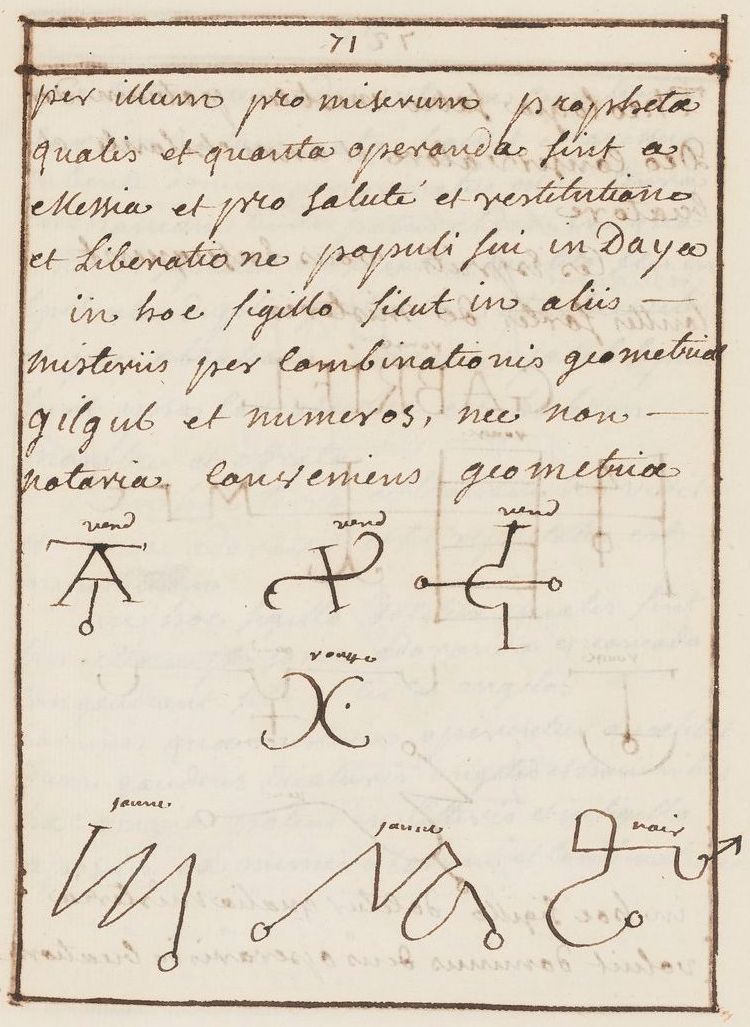 71
per illum promiserum propheta
qualis et quanta operanda sint a
Messia et pro salute et restitutione
et Liberatione populi sui in Daya
iin hoc sigillo sicut in aliis —
misteriis per Combinationis geometria
gilgul et numeros, nec non —
notaria Conveniens geometria
verd verd verd
rouge
jaune
jaune noir